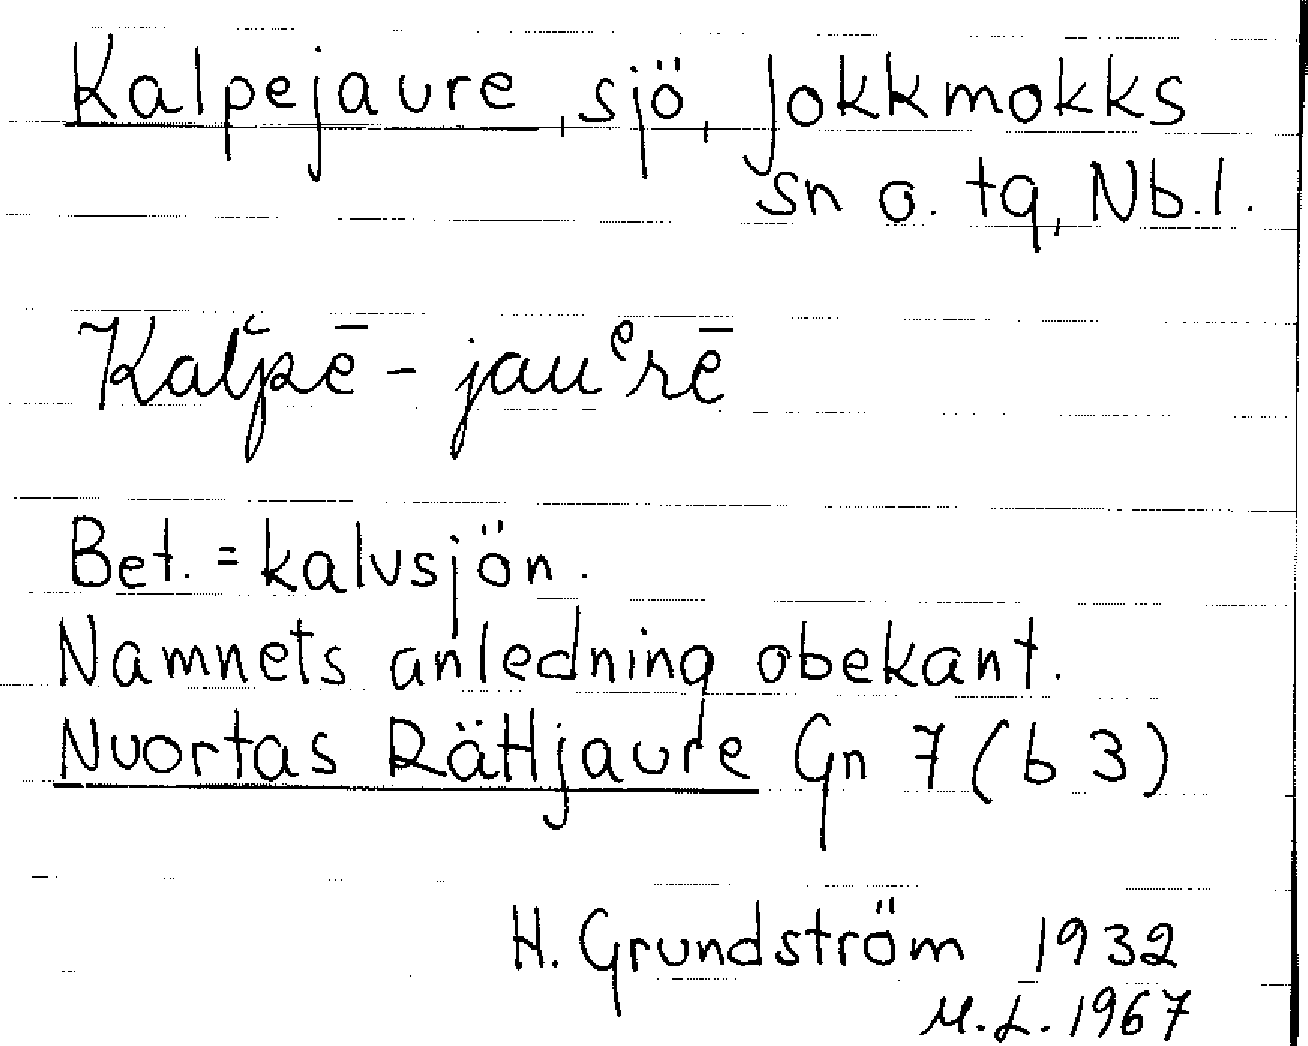 Kalpejaure, sjö, Jokkmokks
sn o. tg, Nb.l.
Kaľ̆pē - jauᵉrē
Bet. = kalvsjön.
Namnets anledning obekant.
Nuortas Rättjaure Gn 7 (b 3)
H. Grundström 1932
M.L. 1967